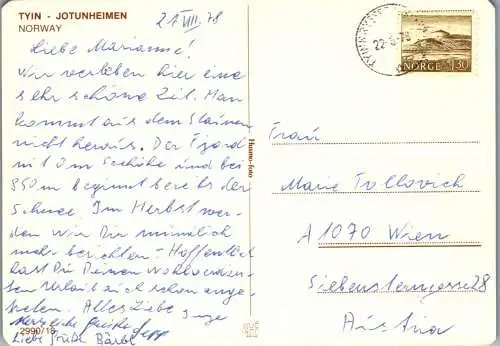 TYIN - JOTUNHEIMEN
NORWAY
21. VII. 78
Liebe Marianne!
Wir verleben hier eine
sehr schöne Zeit. Man
kommt aus dem Staunen
nicht heraus. Der Fjord
mit 0 m Seehöhe und bei
850 m beginnt bereits der
Schnee. Im Herbst wer-
den wir Dir mündlich
mehr berichten. Hoffentlich
hast Du Deinen wohlverdien-
ten Urlaub auch schon ange-
treten. Alles Liebe Inge
Herzliche Grüße Sepp
Liebe Grüße Bärbl
2990/18
Husmo-foto
NORGE 1.30
Frau
Marie Tollovich
A 1070 Wien
Siebensterngasse 28
Austria